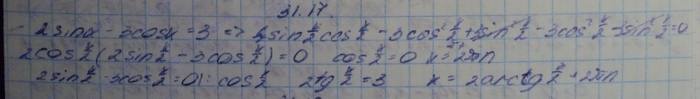 31.17.
2sinx - 3cosx = 3 => 4sin x/2 cos x/2 - 3cos² x/2 + 3sin² x/2 - 3cos² x/2 - 3sin² x/2 = 0
2cos x/2 (2sin x/2 - 3cos x/2) = 0 cos x/2 = 0 x = π + 2πn
2sin x/2 - 3cos x/2 = 0 |: cos x/2 2tg x/2 = 3 x = 2arctg 3/2 + 2πn